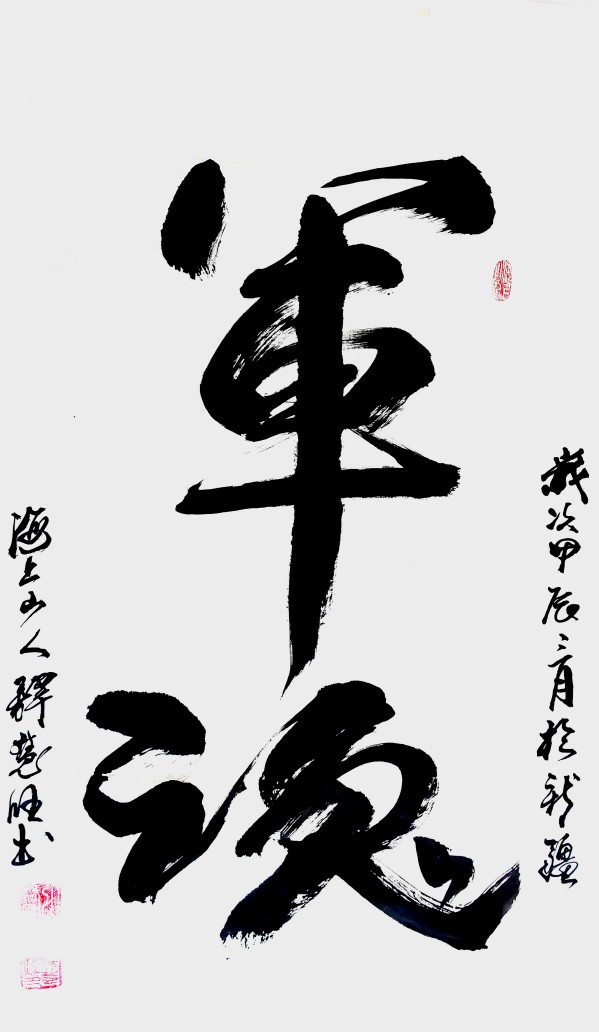 軍魂
歲次甲辰二月於新疆
海上山人釋慧旺书